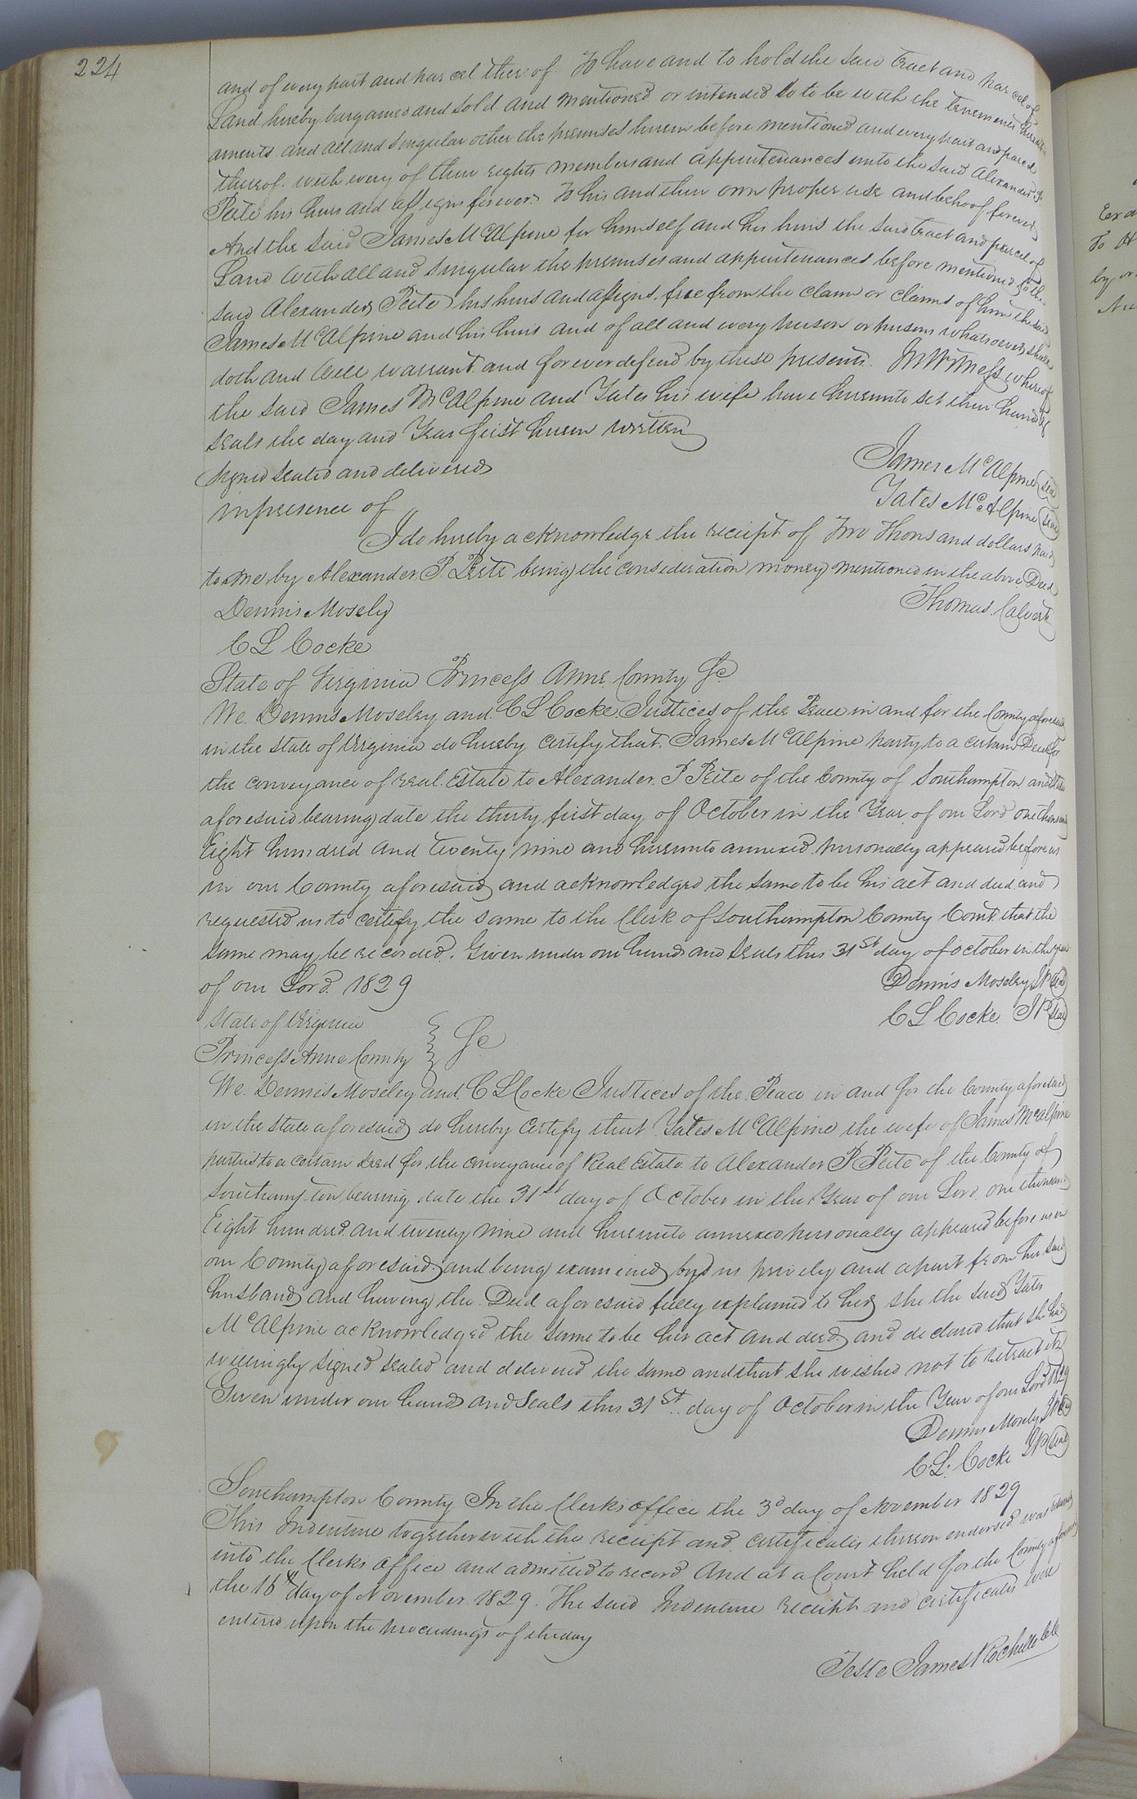 224
and of every part and parcel thereof To have and to hold the said Tract and parcel of
Land hereby bargained and sold and mentioned or intended so to be with the tenements heredit
aments and all and singular other the premises herein before mentioned and every part and parcel
thereof with every of their rights members and appurtenances unto the said Alexander P
Peete his heirs and assigns forever To his and their own proper use and behoof forever
And the said James McAlpine for himself and his heirs the said tract and parcel of
Land with all and singular the premises and appurtenances before mentioned to the
said Alexander Peete his heirs and assigns free from the claim or claims of him the said
James McAlpine and his heirs and of all and every person or persons whatsoever shall
doth and will warrant and forever defend by these presents. In Witness whereof
the said James McAlpine and Yates his wife have hereunto set their hands &
seals the day and Year first herein written
Signed sealed and delivered
in presence of
James McAlpine seal
Yates McAlpine seal
I do hereby acknowledge the receipt of Two Thousand dollars paid
to me by Alexander P Peete being the consideration money mentioned in the above Deed
Dennis Mosely
Thomas Calvert
C L Cocke
State of Virginia Princess Anne County Sc
We Dennis Moseley and C L Cocke Justices of the Peace in and for the County aforesaid
in the State of Virginia do hereby certify that James McAlpine party to a certain Deed for
the conveyance of real Estate to Alexander P Peete of the County of Southampton and State
aforesaid bearing date the thirty first day of October in the Year of our Lord one thousand
Eight hundred and twenty nine and hereunto annexed personally appeared before us
in our County aforesaid and acknowledged the same to be his act and deed and
requested us to certify the same to the Clerk of Southampton County Court that the
same may be recorded. Given under our hands and seals this 31st day of october in the year
of our Lord 1829
Dennis Moseley JP seal
C L Cocke JP seal
State of Virginia
Princess Anne County Sc
We Dennis Moseley and C L Cocke Justices of the Peace in and for the County aforesaid
in the State aforesaid do hereby certify that Yates McAlpine the wife of James McAlpine
parties to a certain deed for the conveyance of Real Estate to Alexander P Peete of the County of
Southampton bearing date the 31st day of October in the Year of our Lord one thousand
Eight hundred and twenty nine and hereunto annexed personally appeared before us in
our County aforesaid and being examined by us privily and apart from her said
husband and having the Deed aforesaid fully explained to her she the said Yates
McAlpine acknowledged the same to be her act and deed and declared that she had
willingly signed sealed and delivered the same and that she wished not to retract it
Given under our hands and Seals this 31st day of October in the Year of our Lord 1829
Dennis Mosely JP seal
C. L. Cocke JP seal
Southampton County In the Clerks office the 3d day of November 1829
This Indenture together with the receipt and certificates thereon endorsed was returned
into the Clerks office and admitted to record And at a Court held for the County aforesaid
the 16th day of November 1829. The said Indenture receipt and certificates were
entered upon the proceedings of the day
Teste James Rochelle Clk